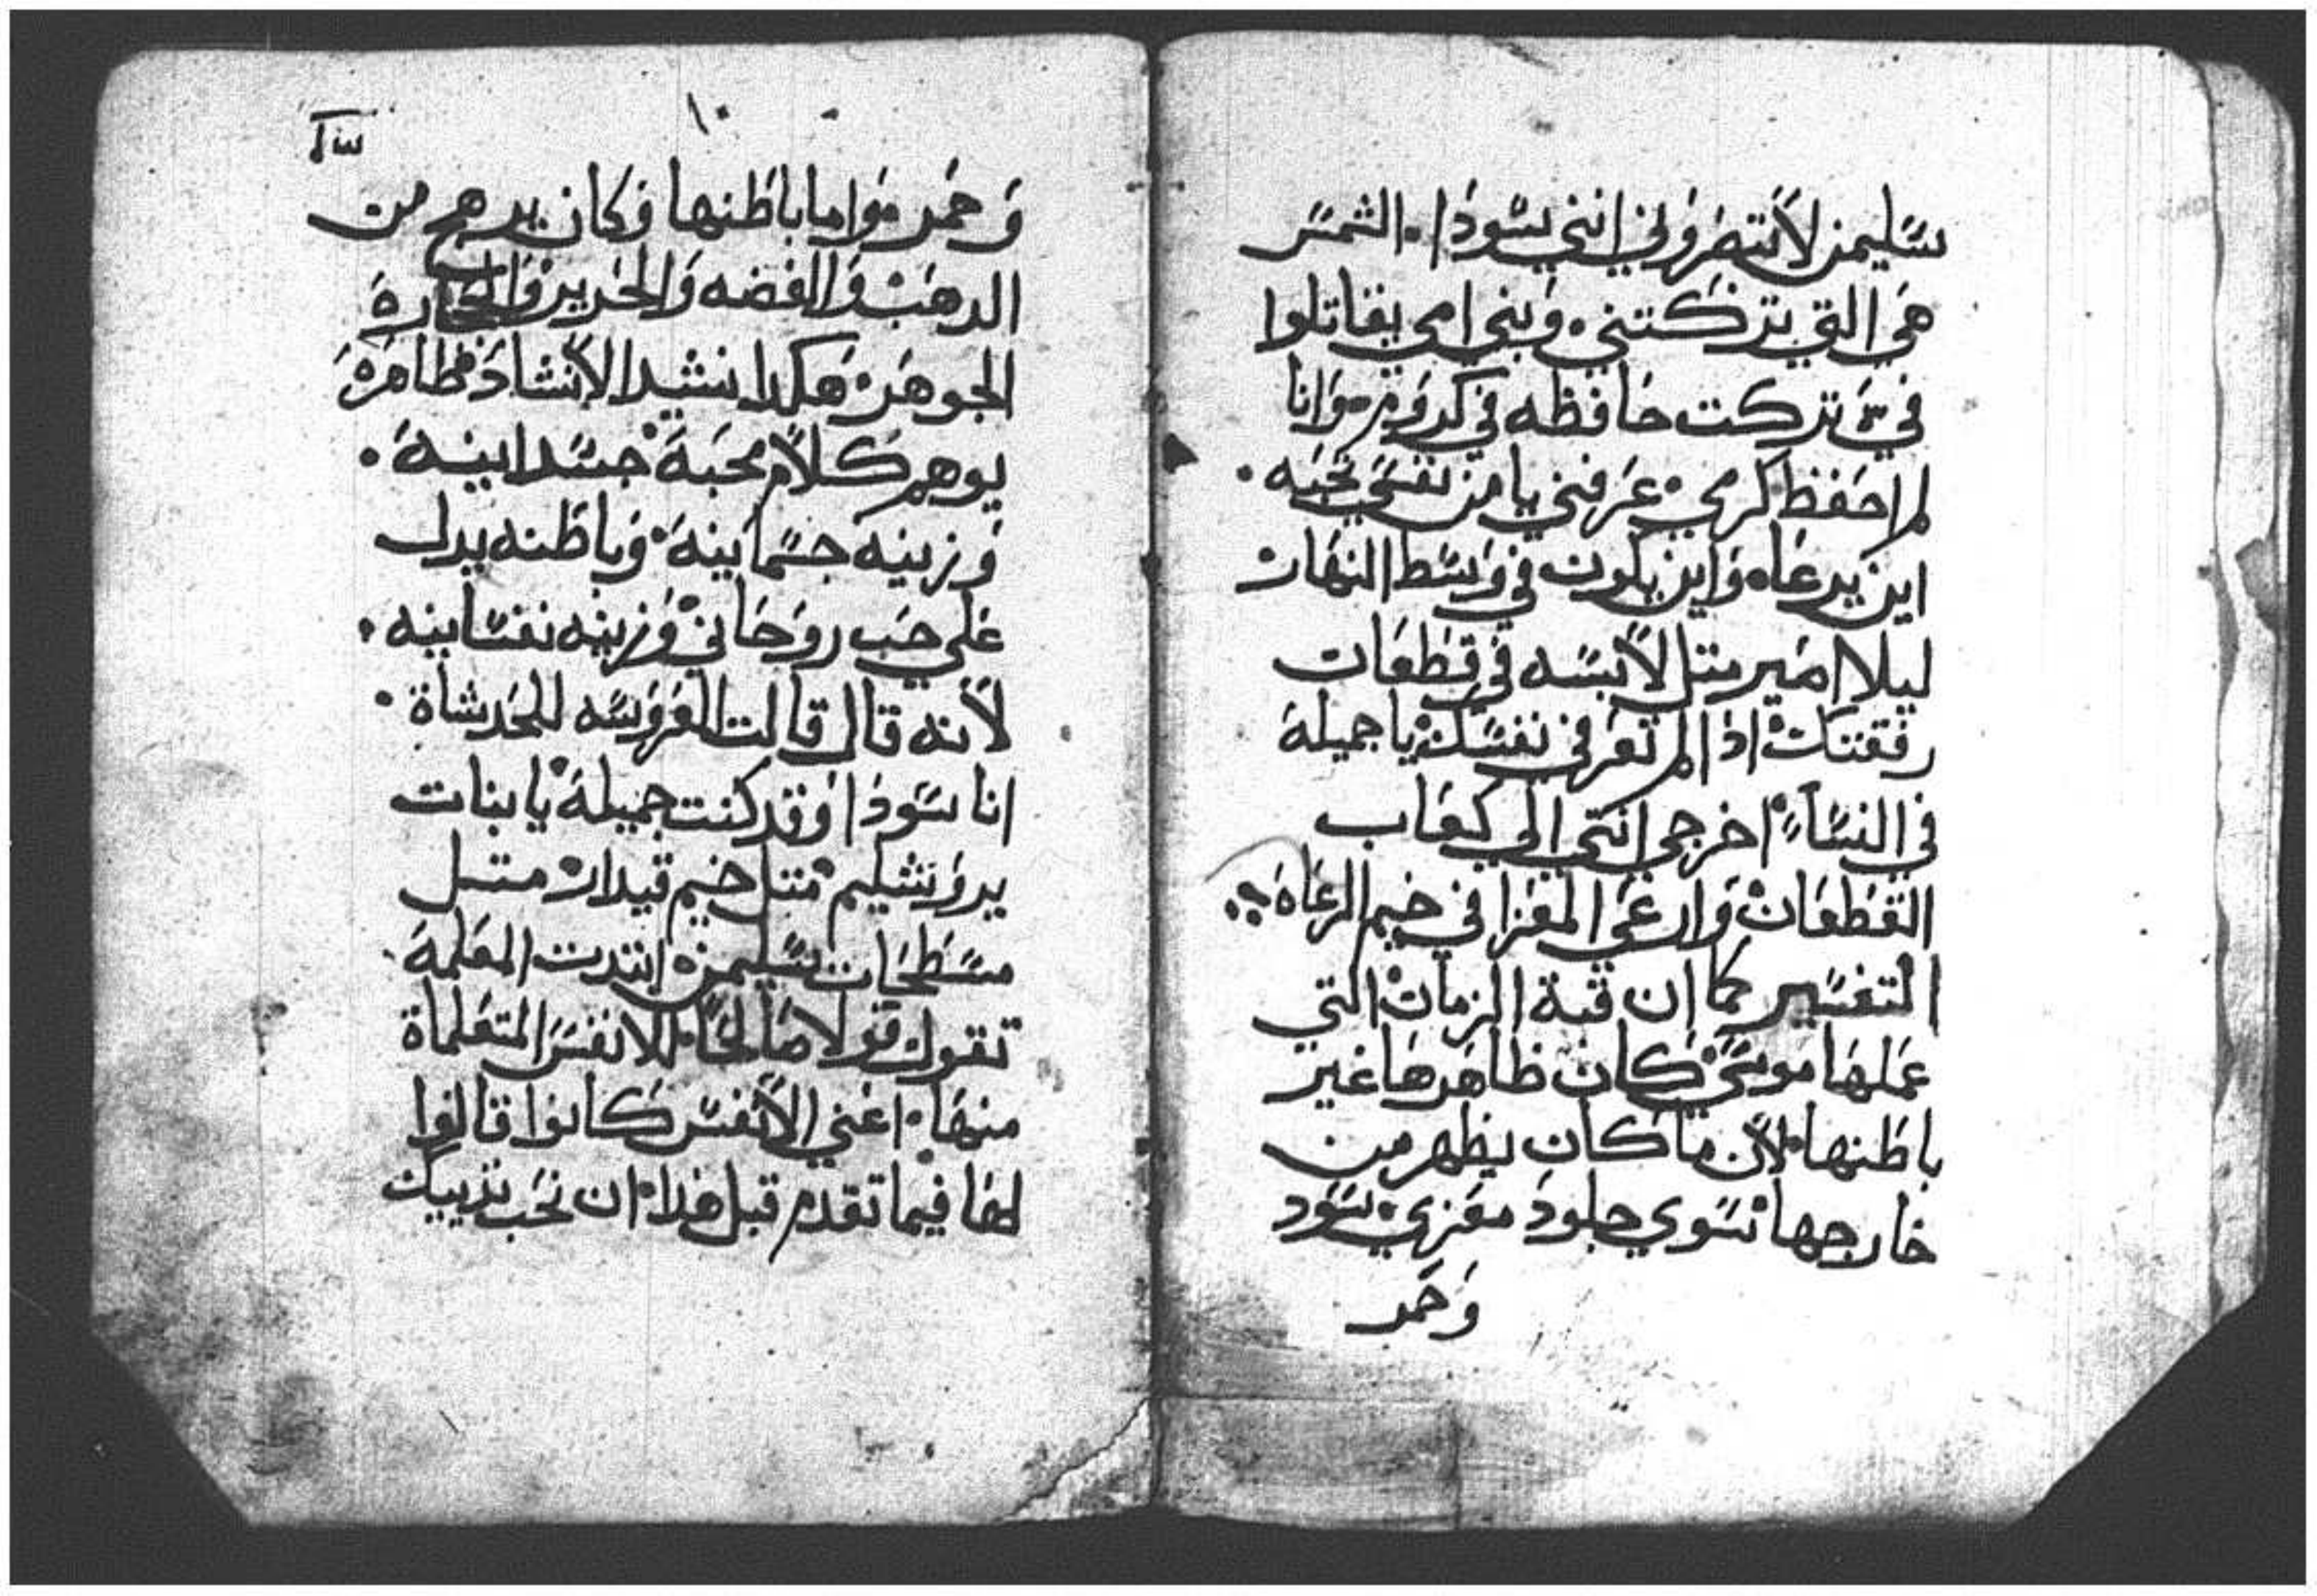 سليمن لا تنضروني انني سودا. الشمس
هي التي تركتني. وبني امي يقاتلوا
في تركت حافظه في كروم. وانا
لم احفظ كرمي. عرفني يا من نفسي تحبه.
اين يرعاه واين يكون في وسط النهار
ليلا اصير متل لابسه في قطعات
رفقتك اذا لم تعرفي نفسك يا جميلة
في النساء. اخرجي انتي الي كعاب
القطعات وارعي المعزا في خيم الرعاه.
التفسير كما ان قبة الزمان التي
عملها موسي كان ظاهرها غير
باطنها لان ما كان يظهر من
خارجها سوي جلود معزي سود
وحمر
١٠
وحمر. واما باطنها فكان يدهج من
الدهب والفضه والحرير والحجارة
الجوهر هكدا نشيد الانشاد ظاهرة
يوهم كلام محبة جسدانية.
وزينه جسمانية وباطنه يدل
علي حب روحاني وزينه نفسانيه.
لانه قال قالت العروسه للحدثاة.
انا سودا وقد كنت جميلة يا بنات
يروشليم متل خيم قيدار متل
مسطحات سليمن. ابتدت المعلمة
تقول قولا صالحا للانفس المتعلماة
منها. اعني الانفس كانوا قالوا
لها فيما تقدم قبل هذا ان نحب تدييك